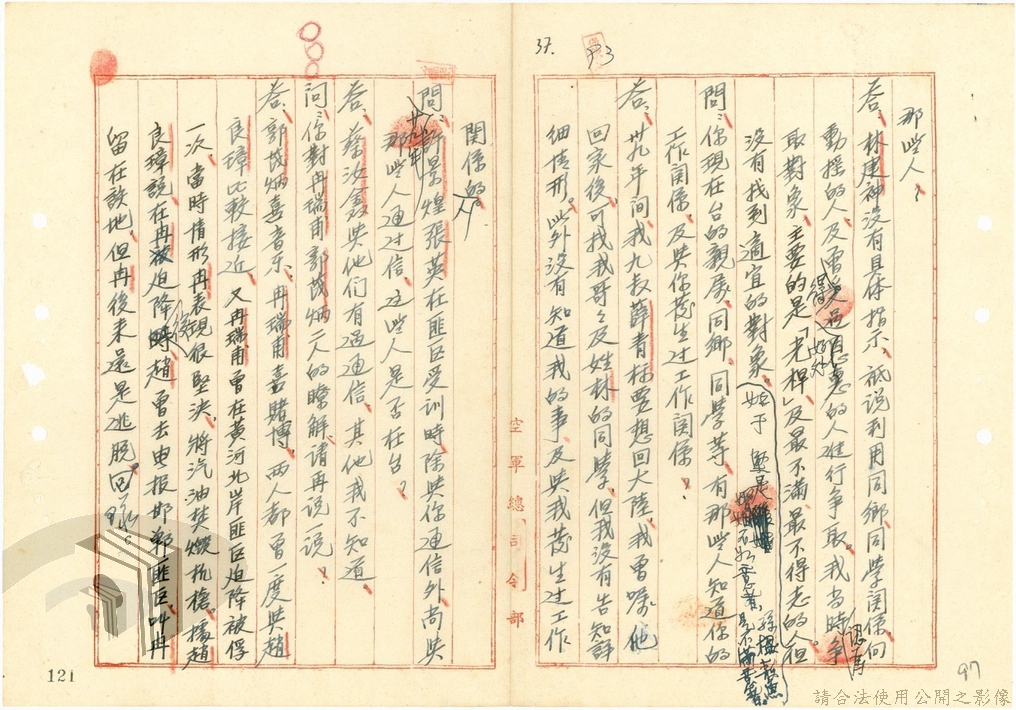 37.
那些人？
答、林建神沒有具体指示、祇説利用同鄉、同學関係、向
動搖的人、及曾受過的人進行爭取、我当時認為爭
取對象、主要的是「老桿」及最不滿、最不得志的人、但
沒有找到適宜的對象。
問：你現在台的親屬、同鄉、同學等、有那些人知道你的
工作関係、及與你發生过工作関係？
答、卅九年间、我九叔薛青标要想回大陸、我曾嘱他
回家後、可找我哥々及姓林的同學、但我沒有告知詳
細情形。此外沒有知道我的事、及與我發生过工作
関係的人
空軍總司令部
問：許景煌、張英在匪区受訓時、除與你通信外、尚與
那些人通过信、这些人是否在台？
答、蔡汝鑫與他们有過通信、其他我不知道、
問：你對冉瑞甫、郭成炳二人的瞭解、請再説一説？
答、郭成炳喜音乐、冉瑞甫喜賭博、两人都曾一度與趙
良璋比較接近、又冉瑞甫曾在黃河北岸匪区迫降被俘
一次、當時情形冉表現很堅決、將汽油焚燬抗槍。據趙
良璋説、在冉被迫降後趙曾去电报邯鄲匪区、叫冉
留在該地、但冉後来還是逃脱回
121
97
請合法使用公開之影像